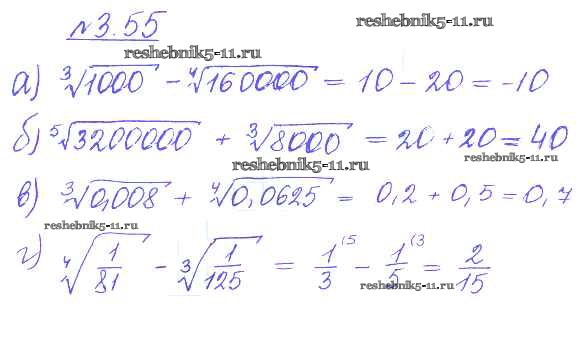 №3.55
reshebnik5-11.ru
reshebnik5-11.ru
а) ∛1000 − ∜160000 = 10 − 20 = -10
б) ⁵√3200000 + ∛8000 = 20 + 20 = 40
reshebnik5-11.ru
reshebnik5-11.ru
в) ∛0,008 + ∜0,0625 = 0,2 + 0,5 = 0,7
reshebnik5-11.ru
г) ∜(1/81) − ∛(1/125) = 1/3 (5 − 1/5 (3 = 2/15
reshebnik5-11.ru